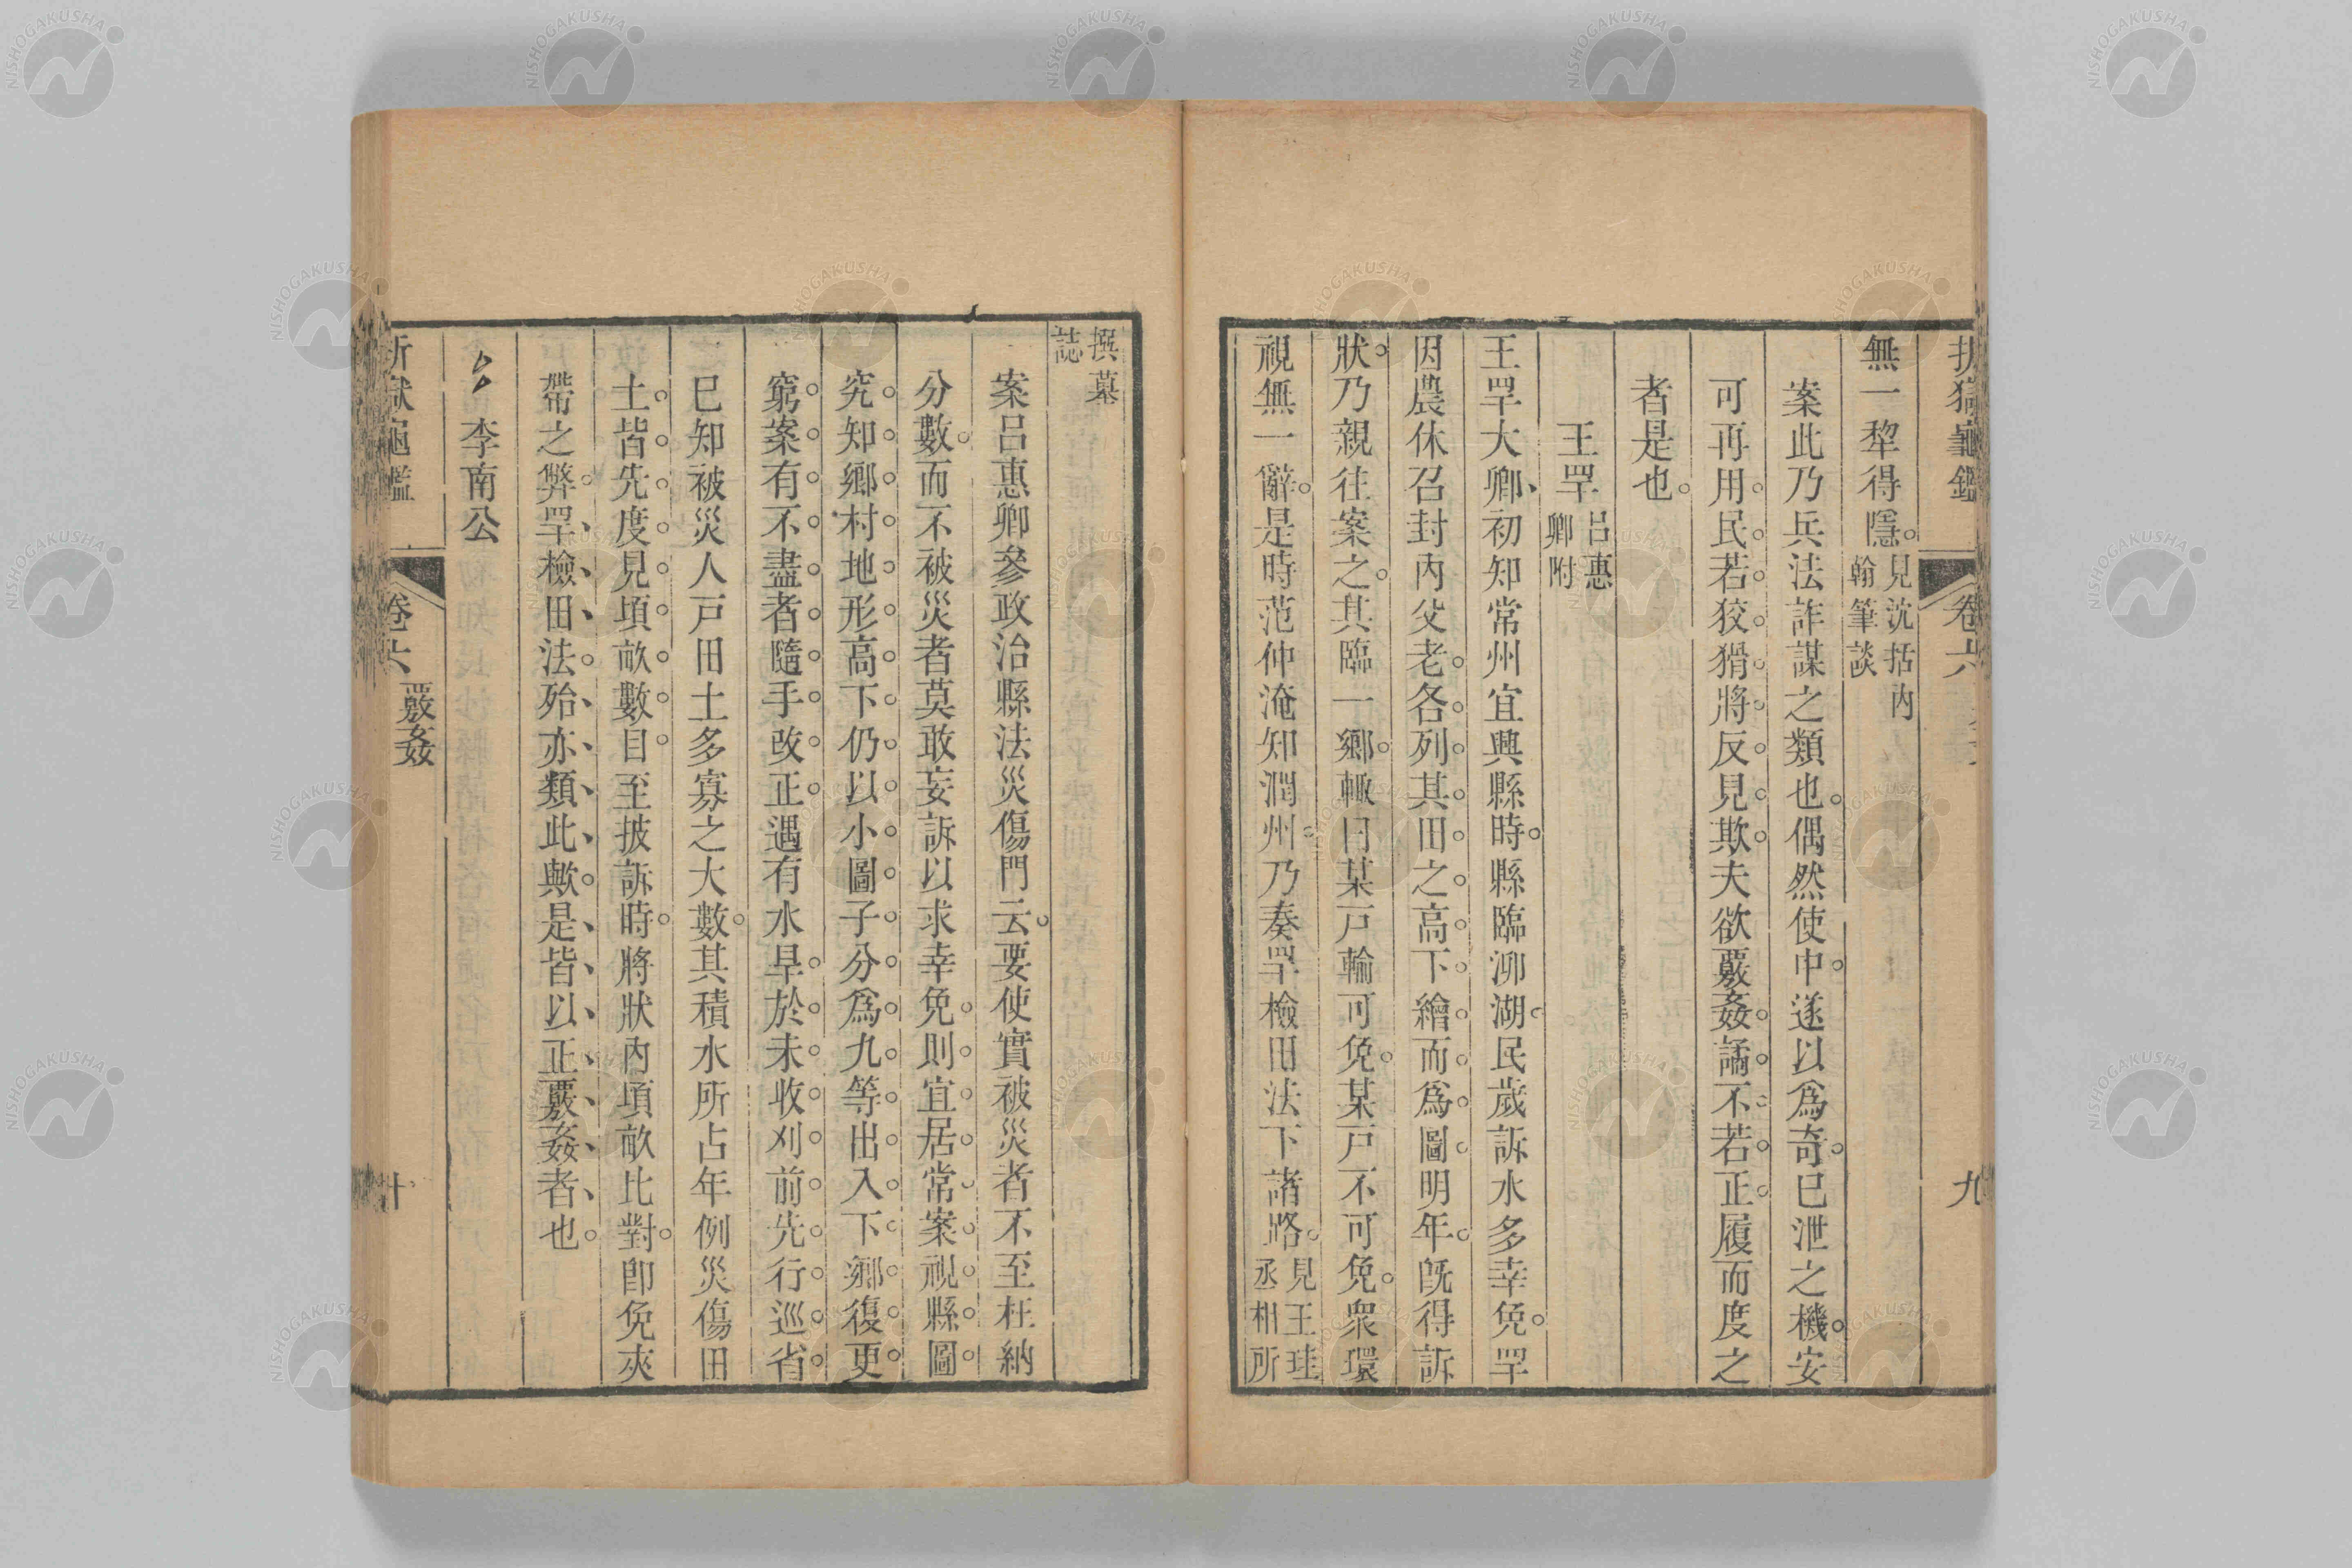 折獄龜鑑 卷六 九
無一犂得隱。見沈括內翰筆談
案此乃兵法詐謀之類也。偶然使中。遂以爲奇。已泄之機。安
可再用。民若狡猾將反見欺。夫欲覈姦譎。不若正履而度之
者是也。
王罕 呂惠卿附
王罕大卿、初知常州宜興縣時。縣臨滆湖。民歲訴水多幸免。罕
因農休召封內父老各列其田之高下繪而爲圖。明年。旣得訴
狀。乃親往案之。其臨一鄉。輙曰某戸輪可免。某戸不可免。衆環
視無一辭。是時范仲淹知潤州。乃奏罕檢田法下諸路。見王珪丞相所
撰墓誌
案呂惠卿參政治縣法災傷門云。要使實被災者不至枉納
分數。而不被災者莫敢妄訴以求幸免。則宜居常案視縣圖
究知鄉村地形高下仍以小圖子分爲九等出入下鄉復更
窮案有不盡者隨手改正。遇有水旱於未收刈前先行巡省。
已知被災人戸田土多寡之大數。其積水所占年例災傷田
土。皆先度見頃畝數目。至披訴時。將狀內頃畝比對。卽免夾
帶之弊。罕檢田法。殆亦類此歟。是皆以正覈姦者也。
李南公
折獄龜鑑 卷六 覈姦 十
NISHOGAKUSHA